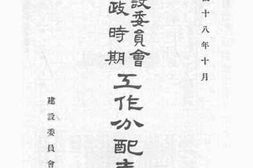 十八年十月
設委員會
政時期
工作分配表
建設委員會